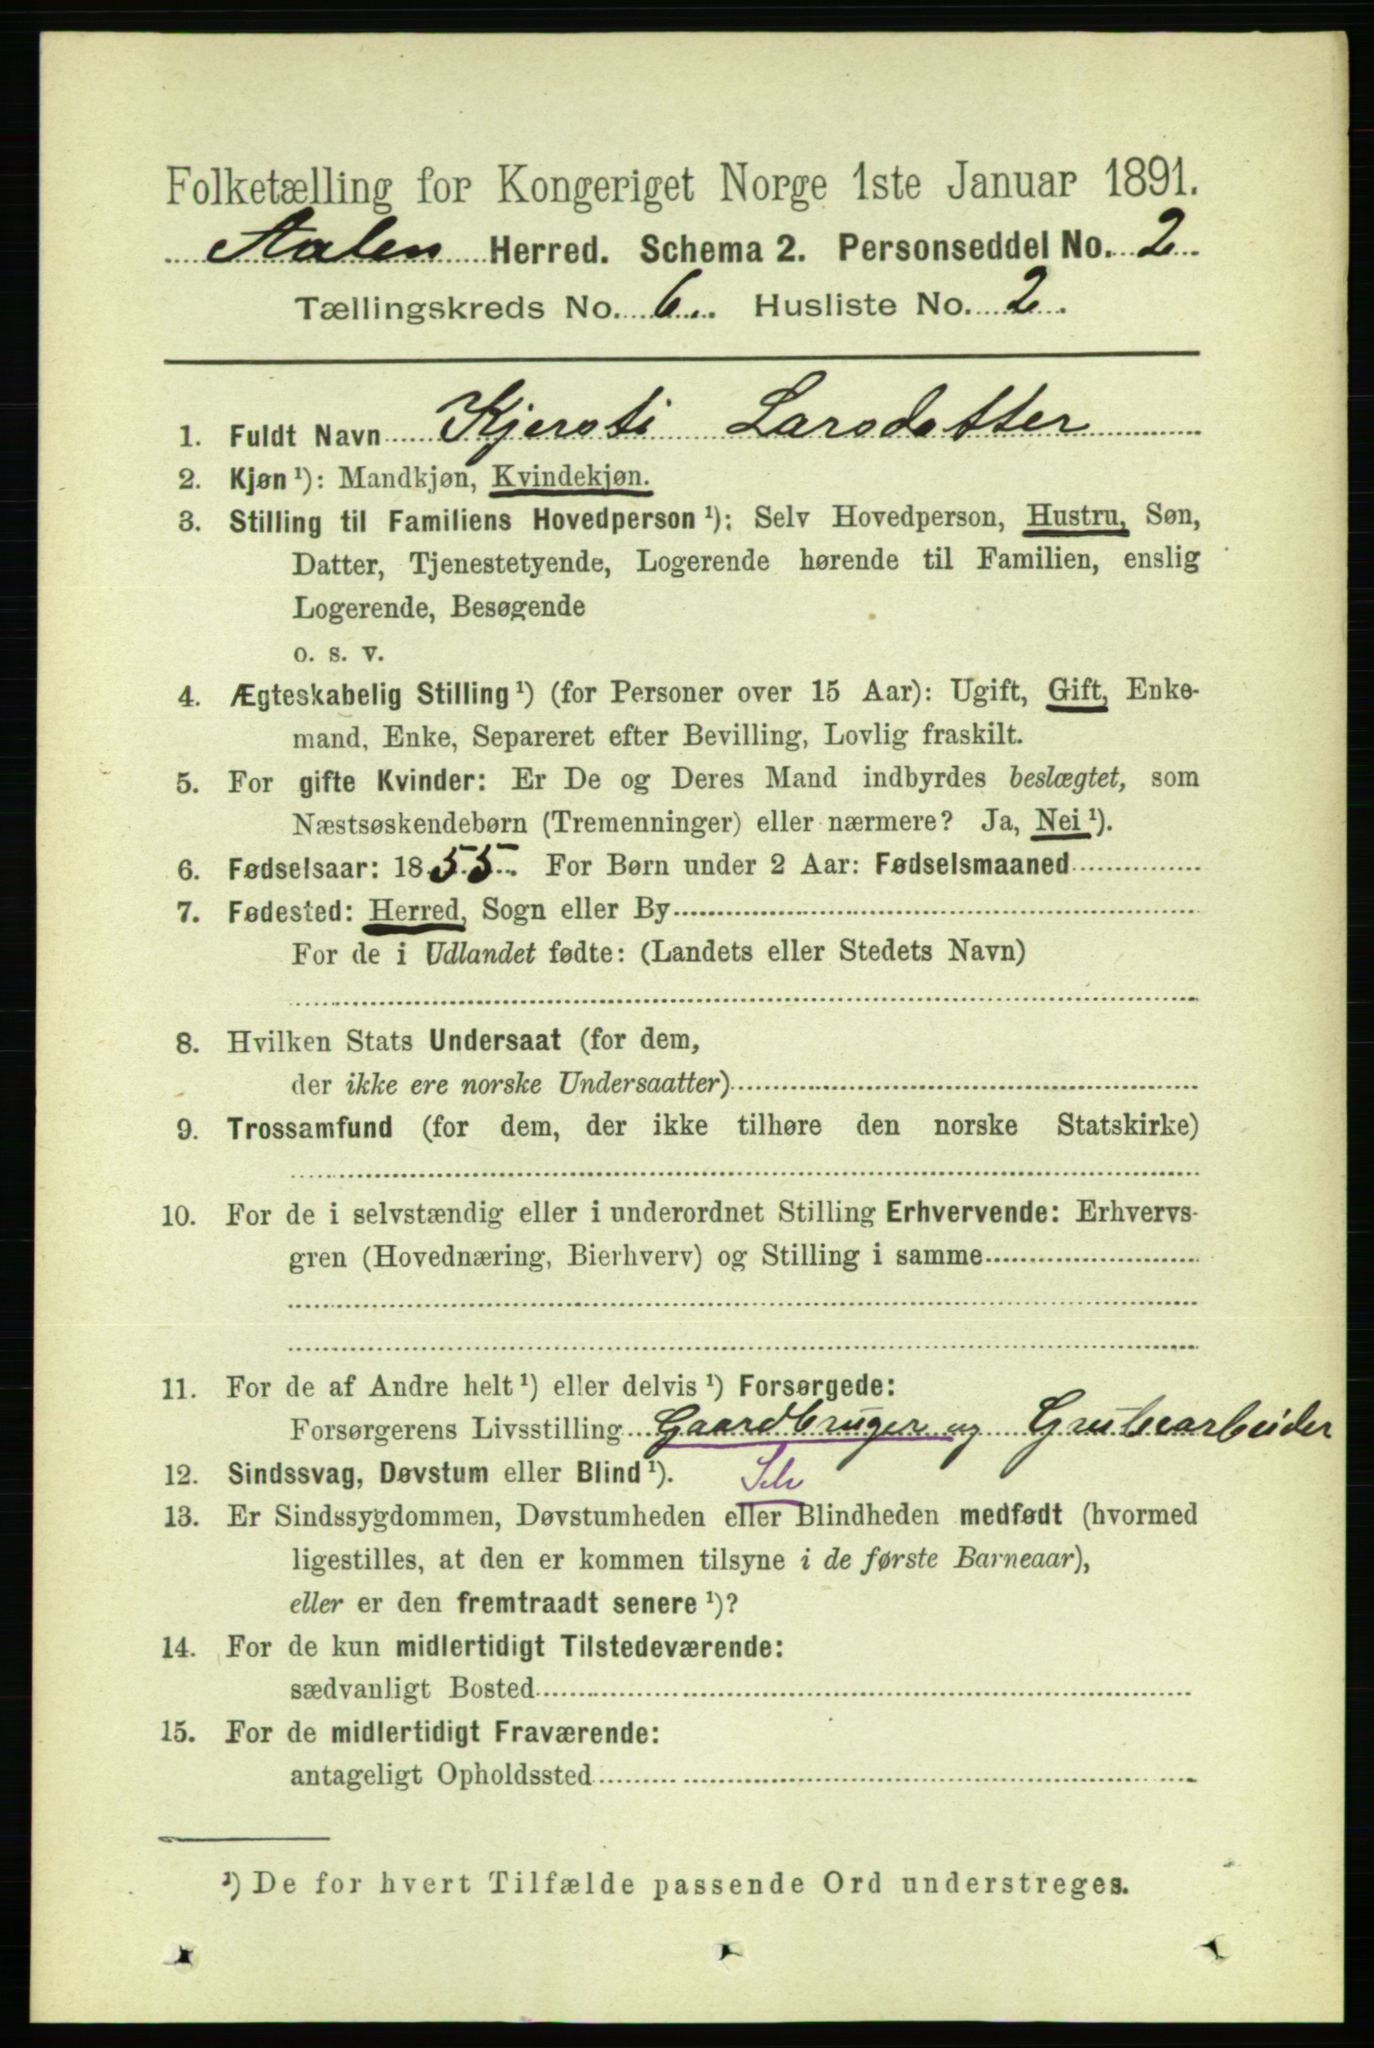 Folketælling for Kongeriget Norge 1ste Januar 1891.
Aalen Herred. Schema 2. Personseddel No. 2
Tællingskreds No. 6 Husliste No. 2
1. Fuldt Navn Kjersti Larsdatter
2. Kjøn ¹): Mandkjøn, Kvindekjøn.
3. Stilling til Familiens Hovedperson ¹): Selv Hovedperson, Hustru, Søn,
Datter, Tjenestetyende, Logerende hørende til Familien, enslig
Logerende, Besøgende
o. s. v.
4. Ægteskabelig Stilling ¹) (for Personer over 15 Aar): Ugift, Gift, Enke-
mand, Enke, Separeret efter Bevilling, Lovlig fraskilt.
5. For gifte Kvinder: Er De og Deres Mand indbyrdes beslægtet, som
Næstsøskendebørn (Tremenninger) eller nærmere? Ja, Nei ¹).
6. Fødselsaar: 1855 For Børn under 2 Aar: Fødselsmaaned
7. Fødested: Herred, Sogn eller By
For de i Udlandet fødte: (Landets eller Stedets Navn)
8. Hvilken Stats Undersaat (for dem,
der ikke ere norske Undersaatter)
9. Trossamfund (for dem, der ikke tilhøre den norske Statskirke)
10. For de i selvstændig eller i underordnet Stilling Erhvervende: Erhvervs-
gren (Hovednæring, Bierhverv) og Stilling i samme
11. For de af Andre helt ¹) eller delvis ¹) Forsørgede:
Forsørgerens Livsstilling Gaardbruger og Grubearbeider
12. Sindssvag, Døvstum eller Blind ¹).
13. Er Sindssygdommen, Døvstumheden eller Blindheden medfødt (hvormed
ligestilles, at den er kommen tilsyne i de første Barneaar),
eller er den fremtraadt senere ¹)?
14. For de kun midlertidigt Tilstedeværende:
sædvanligt Bosted
15. For de midlertidigt Fraværende:
antageligt Opholdssted
¹) De for hvert Tilfælde passende Ord understreges.